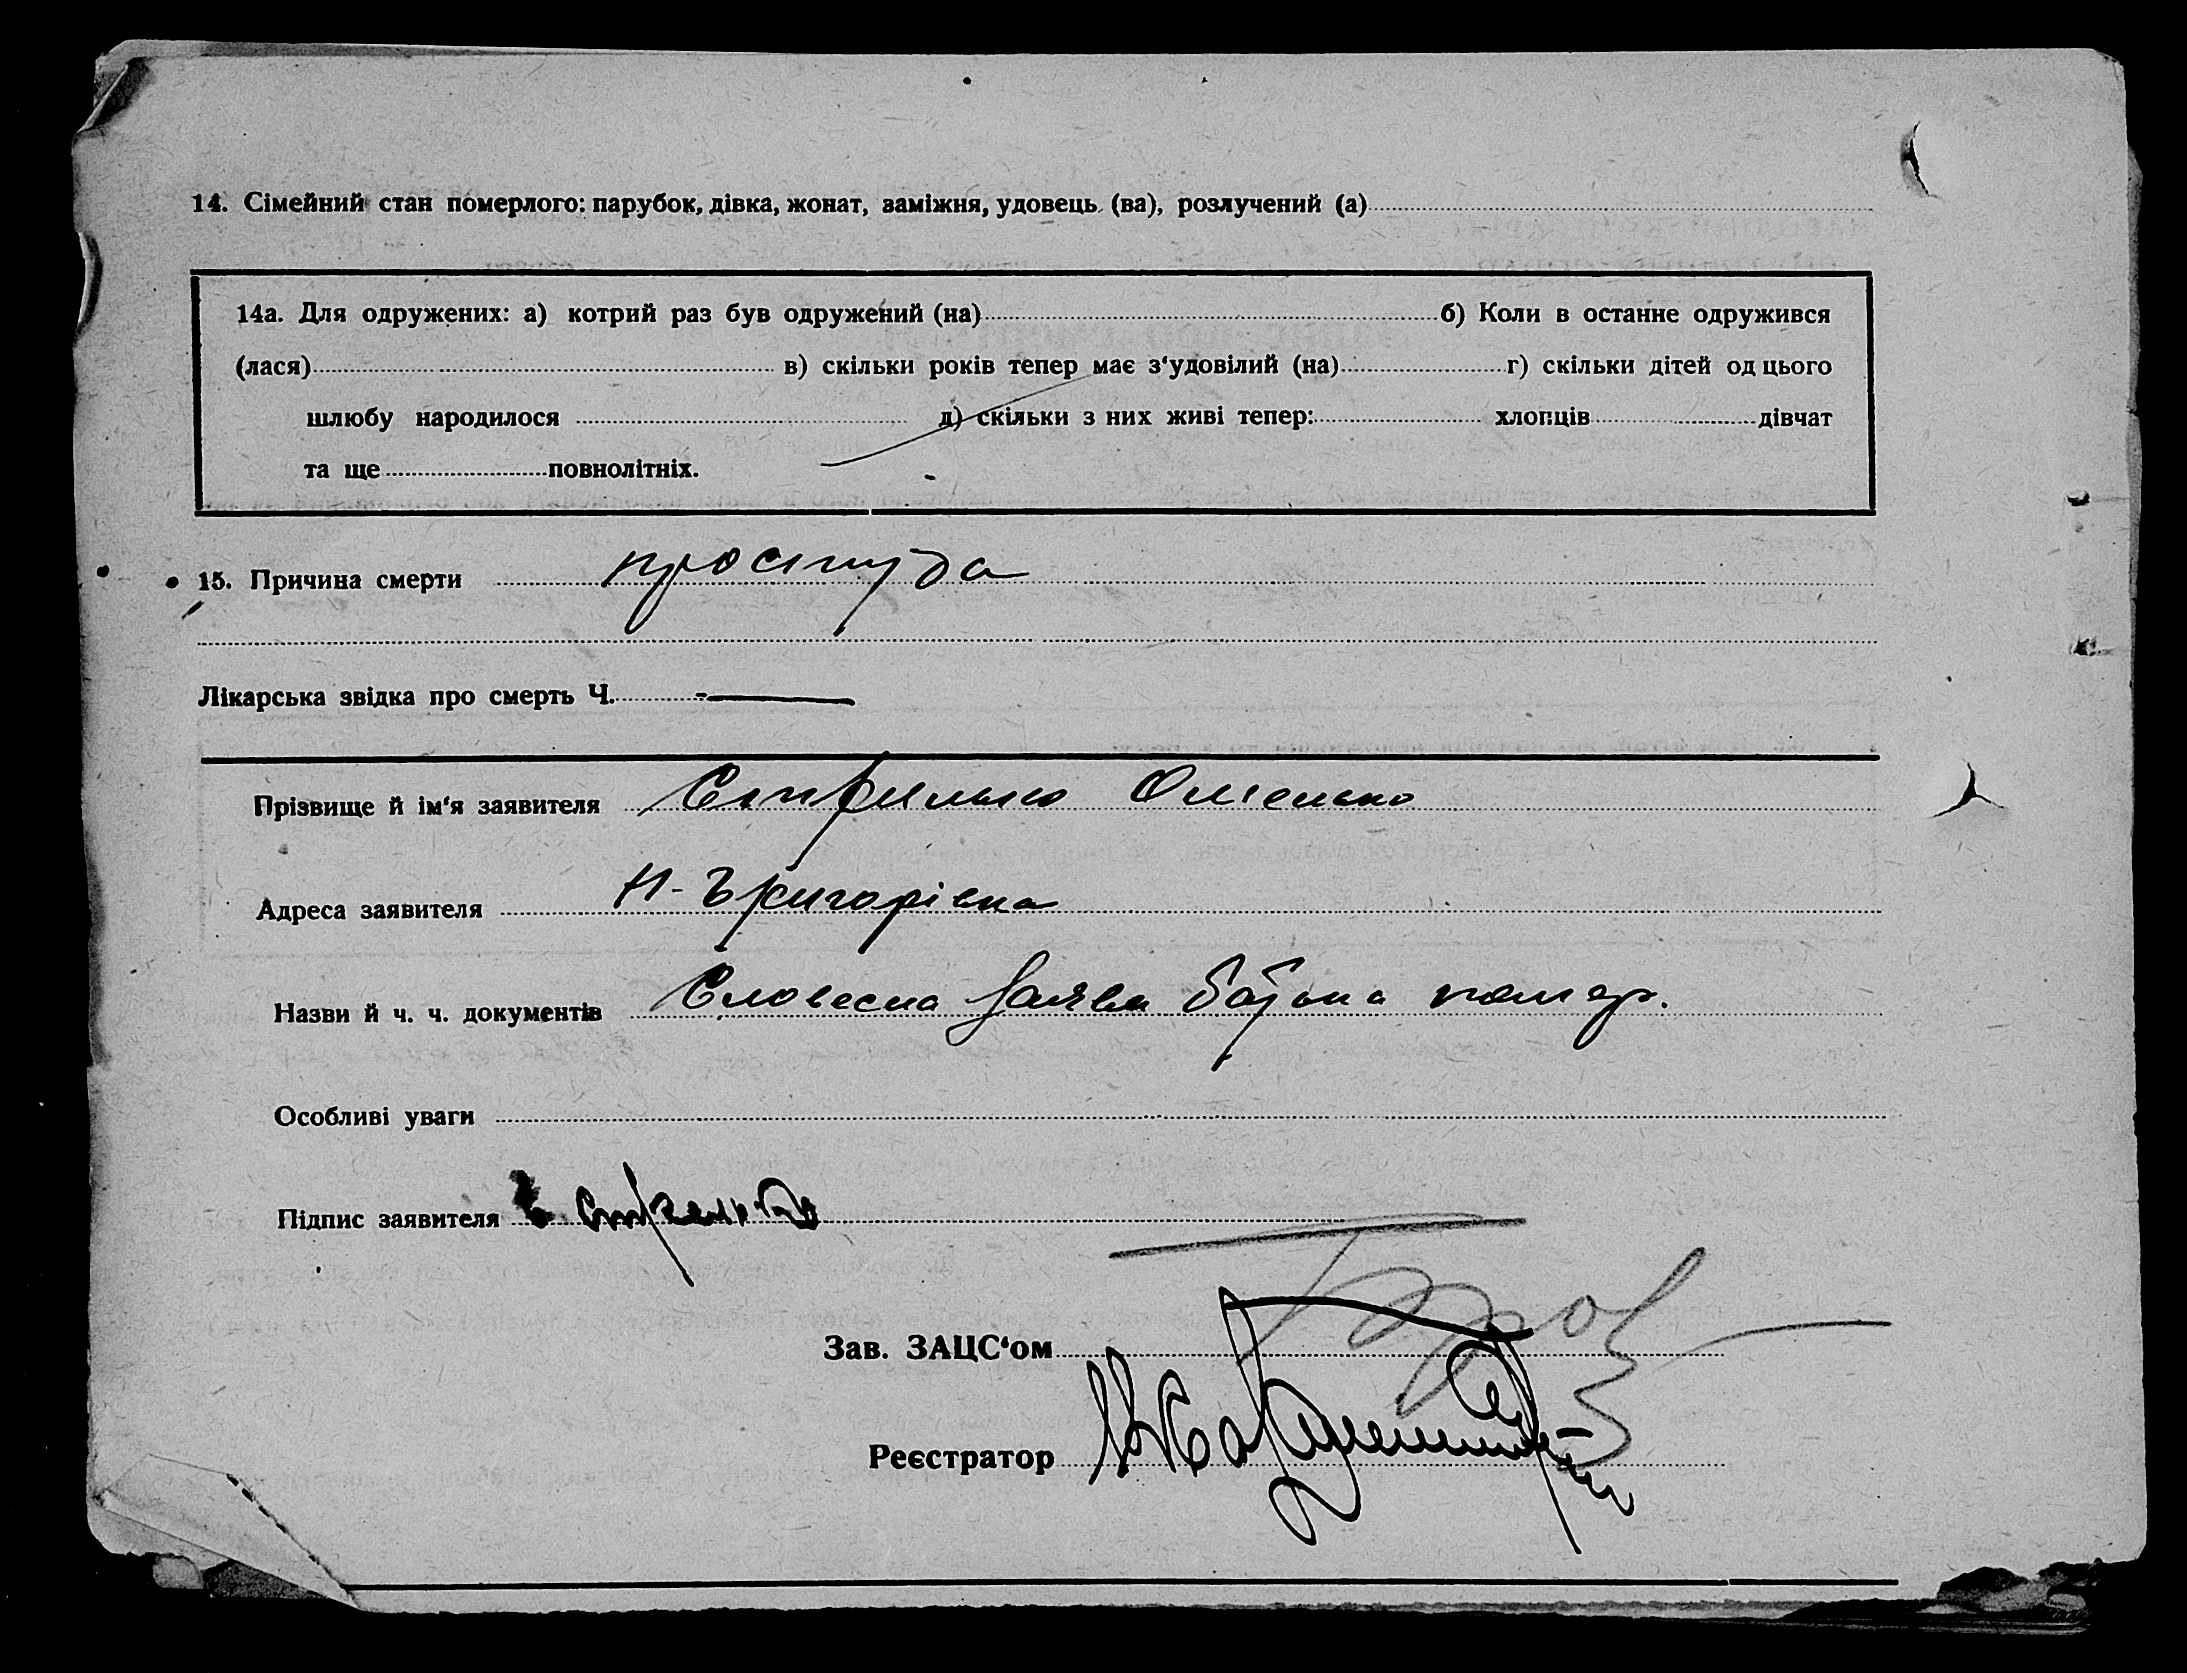 14. Сімейний стан померлого: парубок, дівка, жонат, заміжня, удовець (ва), розлучений (а)
14а. Для одружених: а) котрий раз був одружений (на) б) Коли в останнє одружився
(лася) в) скільки років тепер має з‘удовілий (на) г) скільки дітей од цього
шлюбу народилося д) скільки з них живі тепер: хлопців дівчат
та ще повнолітніх.
15. Причина смерти простуда
Лікарська звідка про смерть Ч. —
Прізвище й ім‘я заявителя Омелько
Адреса заявителя Н-Григорівка
Назви й ч. ч. документів Словесна заява батька помер.
Особливі уваги
Підпис заявителя
Зав. ЗАЦС‘ом
Реєстратор